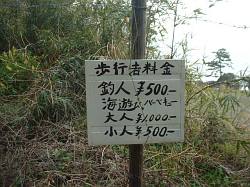 歩行者料金
釣人 ¥500-
海遊び、バーベキュー
大人 ¥1,000-
小人 ¥500-